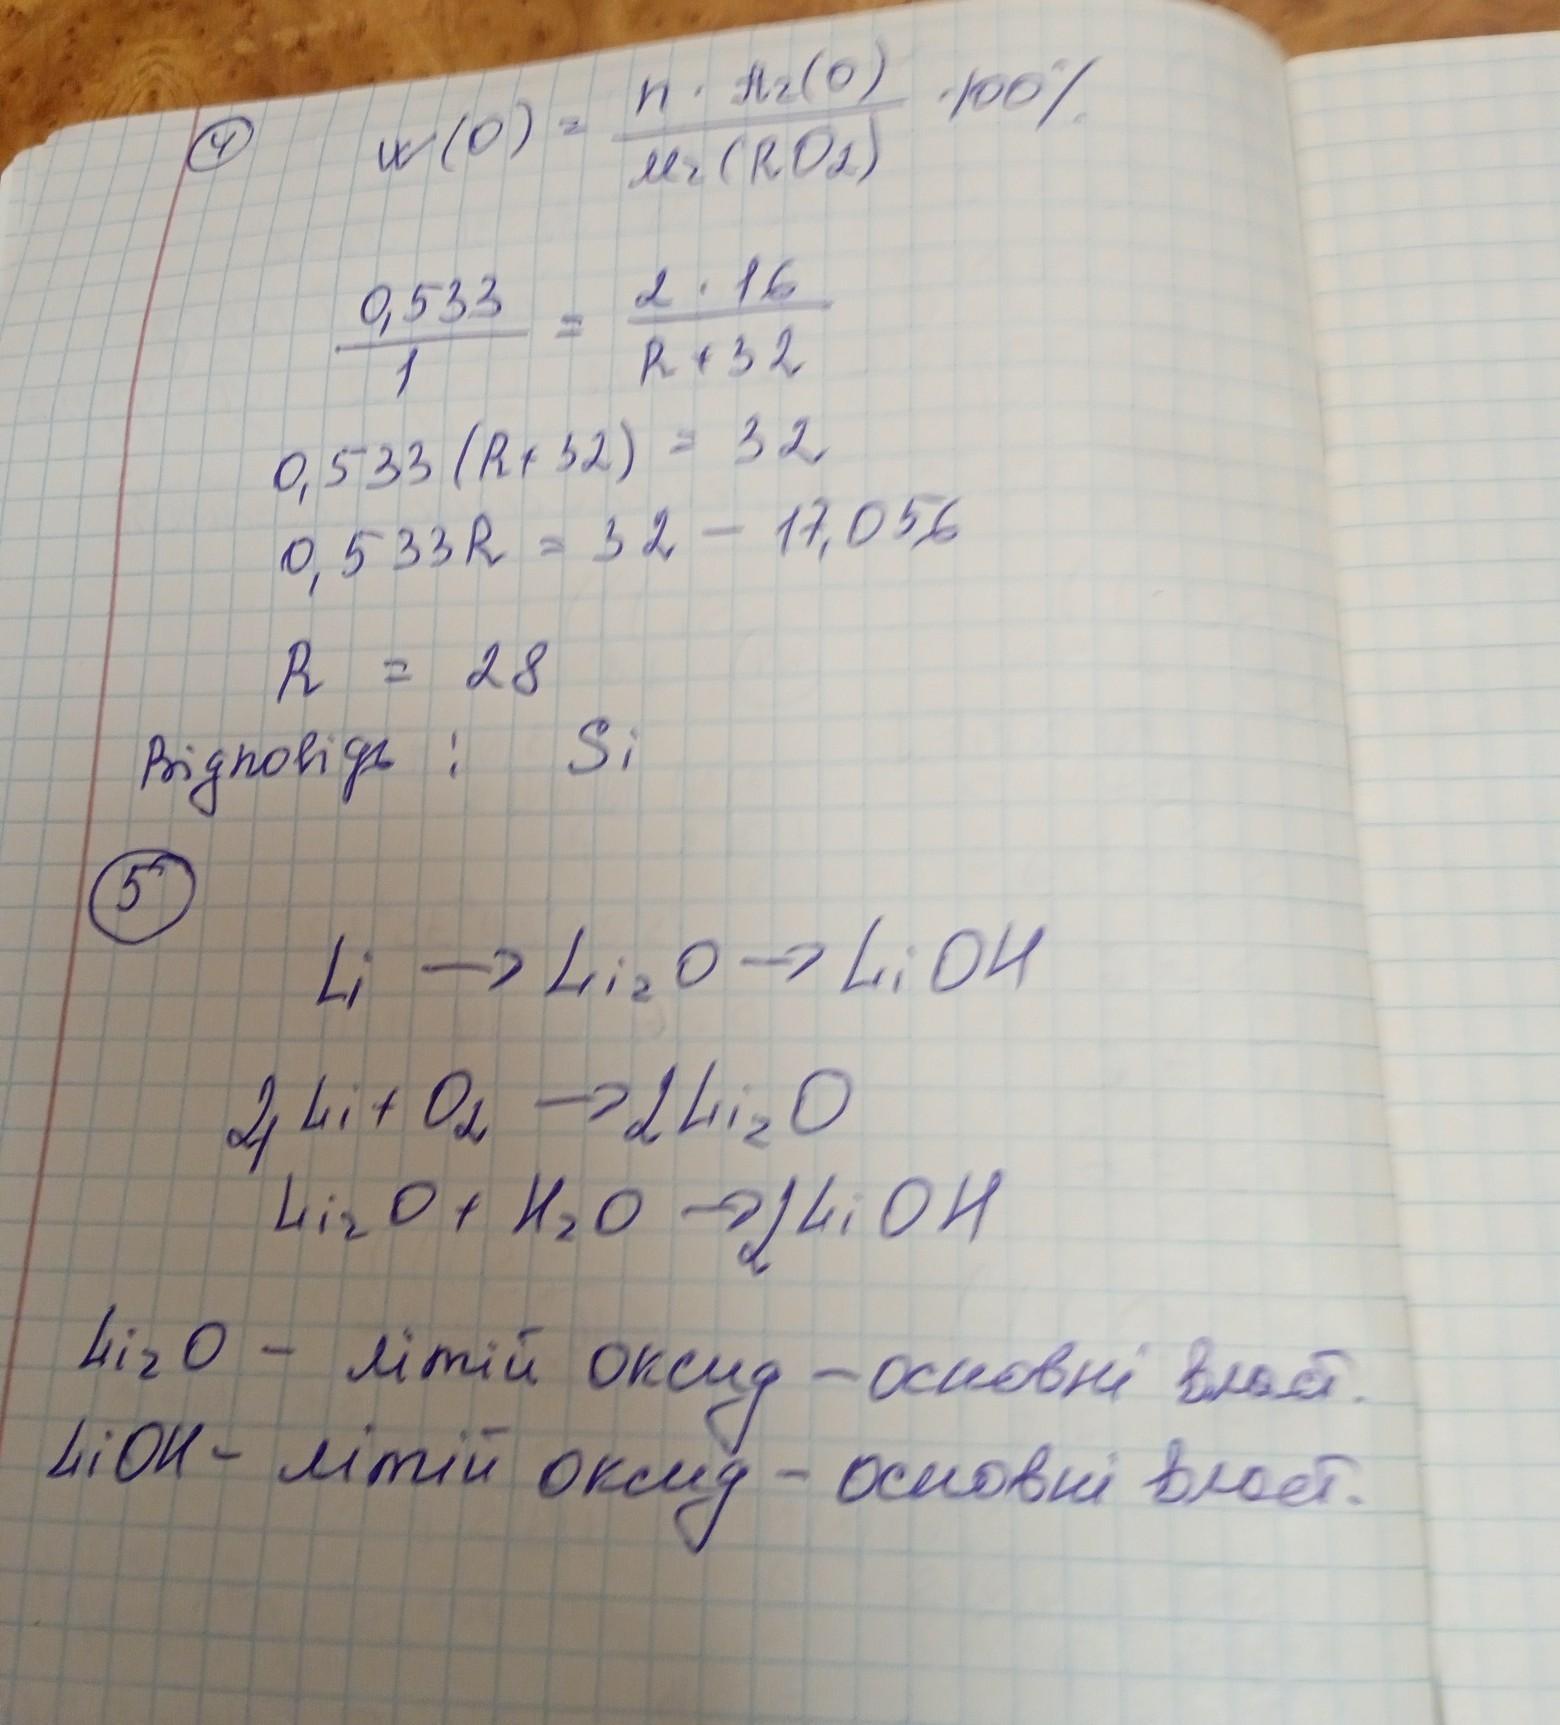 4 w(O) = n · Ar(O) / Mr(RO2) · 100%
0,533 / 1 = 2 · 16 / R + 32
0,533 (R + 32) = 32
0,533R = 32 - 17,056
R = 28
Відповідь : Si
5
Li → Li₂O → LiOH
4Li + O₂ → 2Li₂O
Li₂O + H₂O → 2LiOH
Li₂O - літій оксид - основні власт.
LiOH - літій оксид - основні власт.